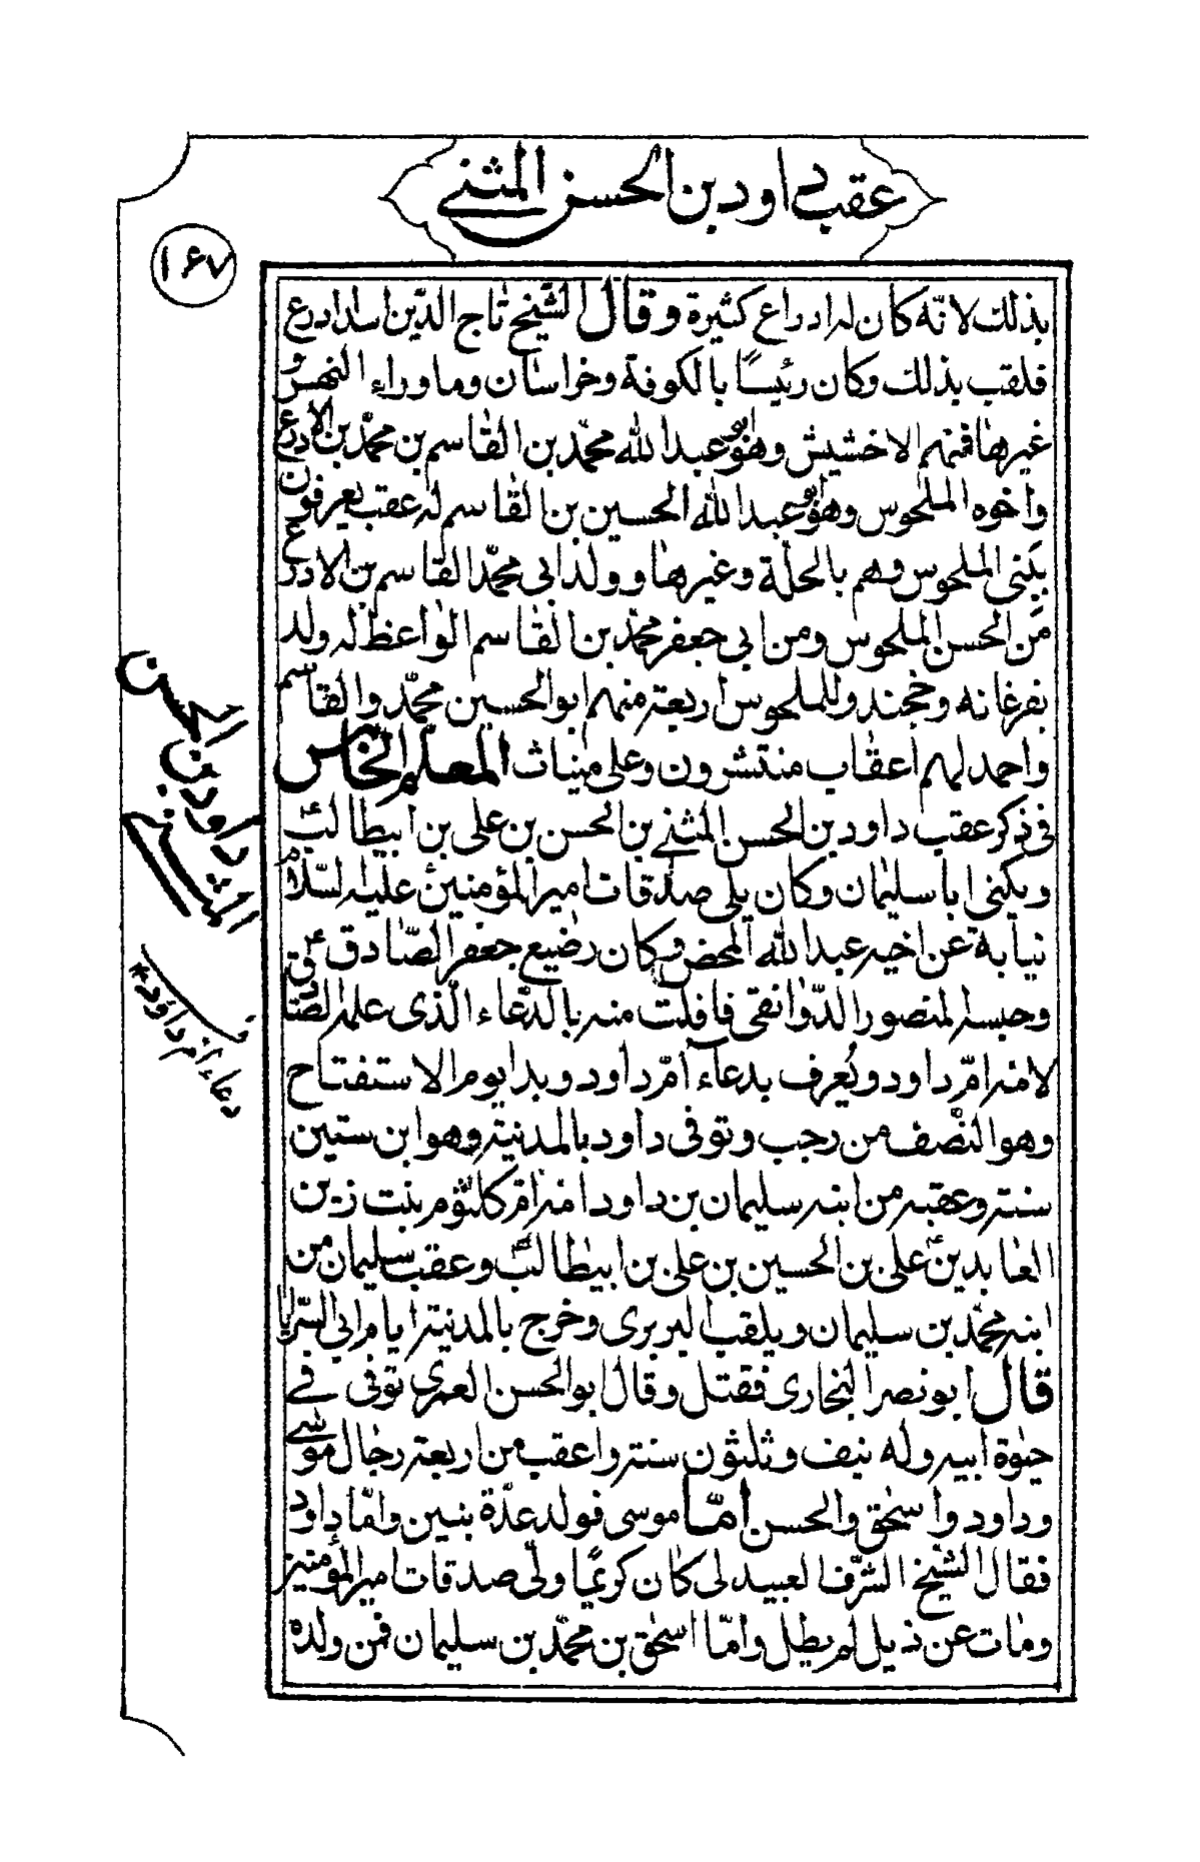 عقب داود بن الحسن المثنى
١۶٧
بذلك لانّه كان له ادراع كثيرة وقال الشّيخ تاج الدّين اسد ادرع
فلقب بذلك وكان رئيسًا بالكوفة وخراسان وما وراء النهر و
غيرها فمنهم الاخشيش وهو ابو عبد الله محمّد بن القاسم بن محمّد بن الادرع
واخوه الملحوس وهو ابو عبد الله الحسين بن القاسم له عقب يعرفون
ببنى الملحوس وهم بالحلّة وغيرها وولد ابى محمّد القاسم بن الادرع
من الحسن الملحوس ومن ابى جعفر محمّد بن القاسم الواعظ له ولد
بفرغانه وخجند وللملحوس اربعة منهم ابو الحسين محمّد والقاسم
واحمد لهم اعقاب منتشرون وعلى ميناث المعلم الخامس
فى ذكر عقب داود بن الحسن المثنى بن الحسن بن على بن ابيطالب ع
ويكنى ابا سليمان وكان يلى صدقات امير المؤمنين عليه السّلام
نيابة عن اخيه عبد الله المحض وكان رضيع جعفر الصّادق ع
وحبسه المنصور الدّوانقى فافلت منه بالدّعاء الّذى علمه الصّادق
لامّه امّ داود ويُعرف بدعاء امّ داود وبدا يوم الاستفتاح
وهو النّصف من رجب وتوفى داود بالمدنية وهو ابن ستين
سنة وعقبه من ابنه سليمان بن داود امّه امّ كلثوم بنت زين
العابدين على بن الحسين بن على بن ابيطالب ع وعقب سليمان من
ابنه محمّد بن سليمان ويلقب البربرى وخرج بالمدنية ايام ابى السّرايا
قال ابو نصر البخارى فقتل وقال ابو الحسن العمرى توفى فى
حيوة ابيه وله نيف وثلثون سنة واعقب من اربعة رجال موسى
وداود واسحق والحسن امّا موسى فولد عدّة بنين وامّا داود
فقال الشيخ الشّرف العبيدلى كان كريمًا ولّى صدقات امير المؤمنين
ومات عن ذيل لم يطل وامّا اسحق بن محمّد بن سليمان فمن ولده
داود بن الحسن
المثنى
دعاء امّ داود